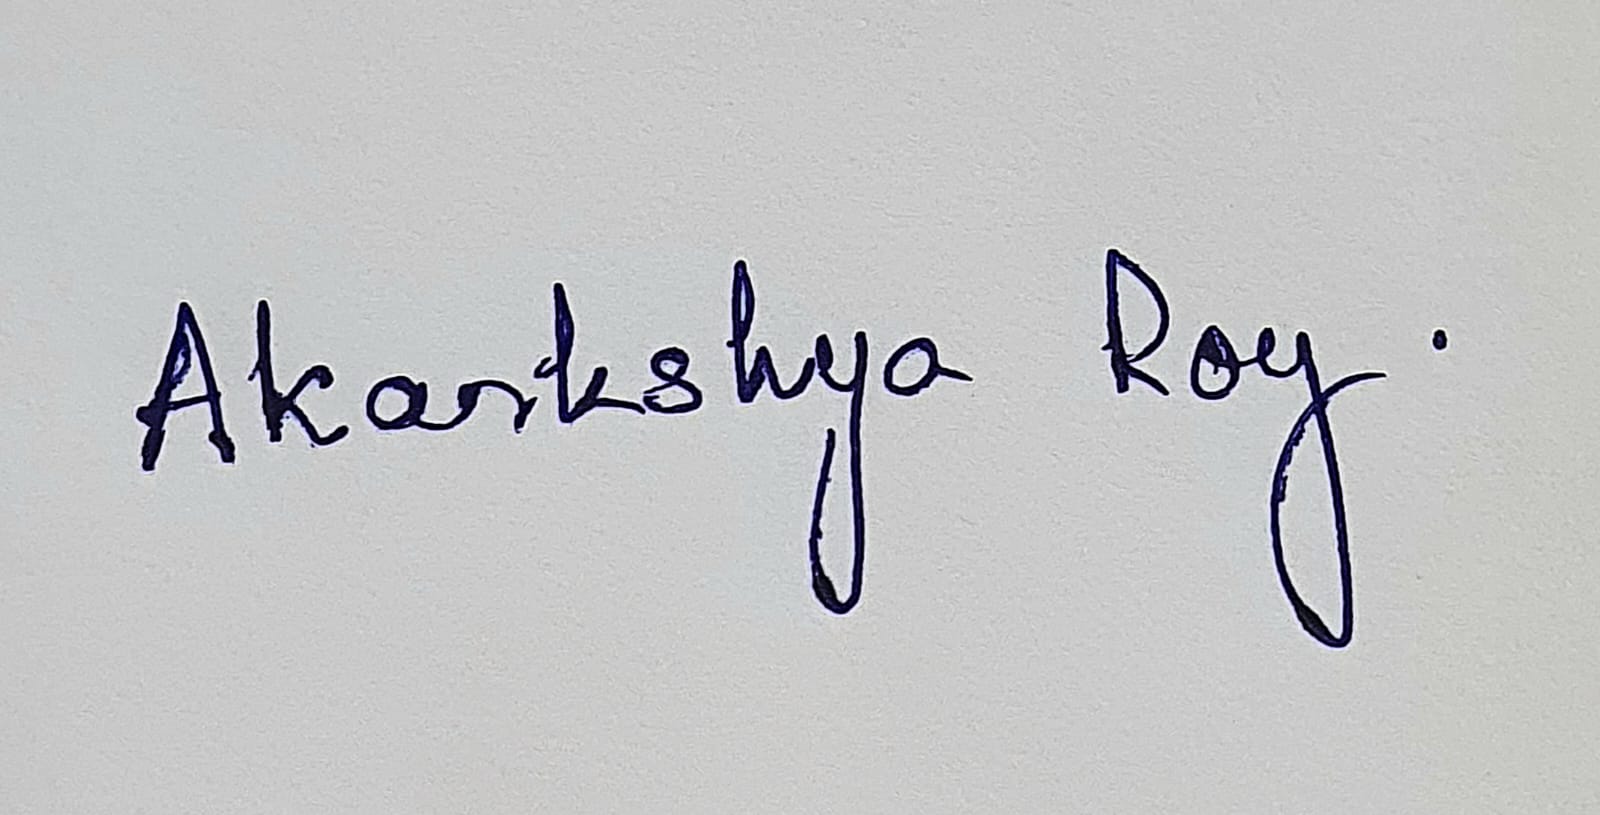 Akankshya Roy.